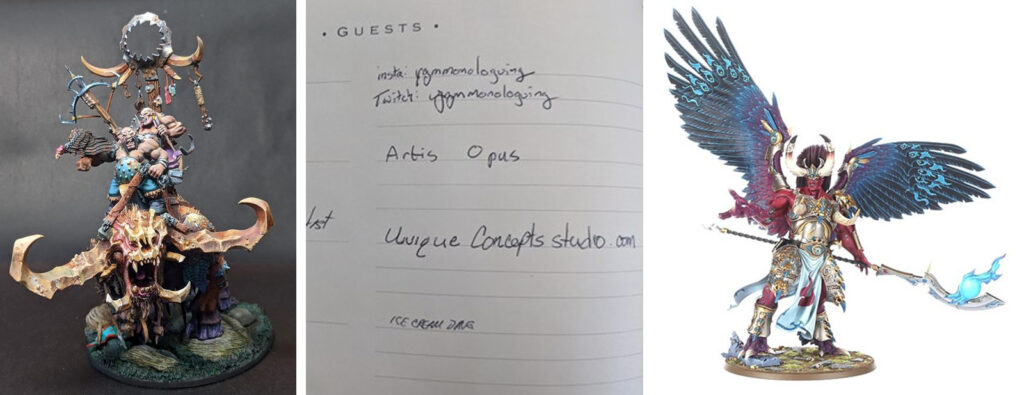 • GUESTS •
insta: rgmmonologuing
Twitch: rgmmonologuing
Artis Opus
dst
Unique Concepts studio.com
ICE CREAM DAVE